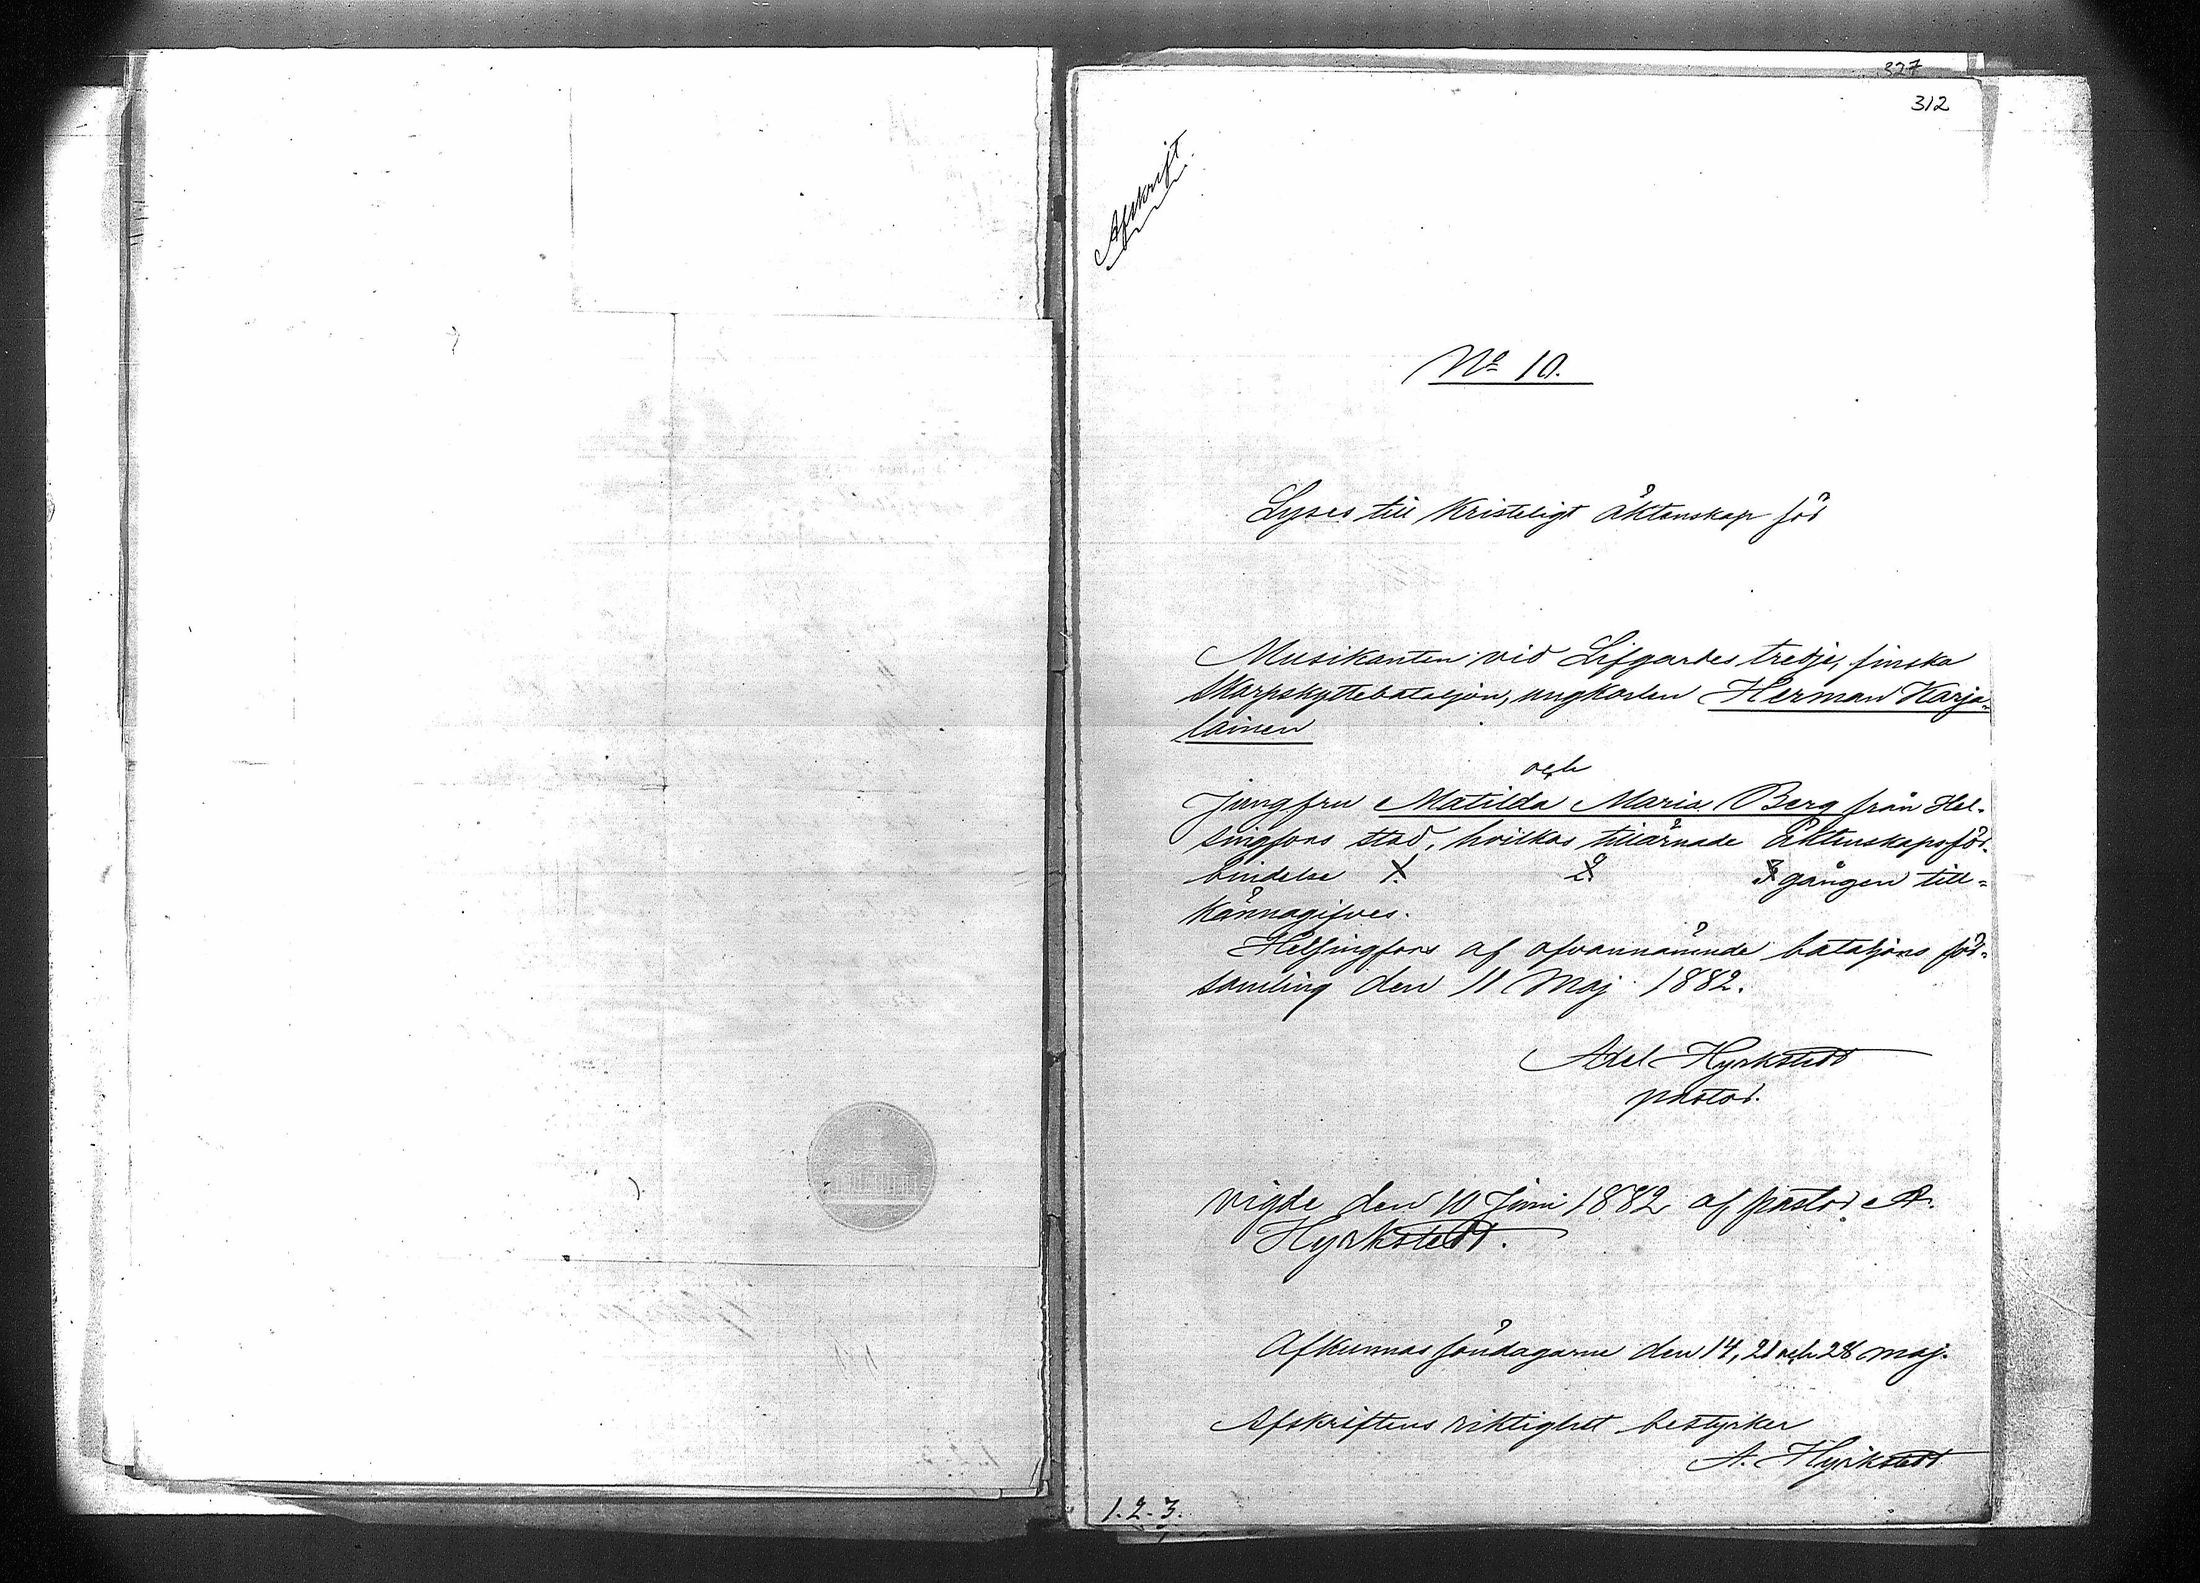 327
312
Afskrift.
No 10.
Lyses till Kristeligt äktenskap för
Musikanten vid Lifgardes tredje, finska
Skarpskyttebataljon, ungkarlen Herman Karja-
lainen
och
Jungfru Matilda Maria Berg från Hel-
singfors stad, hvilkas tillärnade äktenskapsför-
bindelse 1. 2. 3 gången till-
kännagifves.
Helsingfors af ofvannämnde bataljons för-
samling den 11 Maj 1882.
Adel Hyrkstedt
pastor.
vigde den 10 Juni 1882 af pastor A.
Hyrkstedt.
Afkunnas söndagarne den 14, 21 och 28 maj.
Afskriftens riktighet bestyrker
A. Hyrkstedt
1. 2. 3.